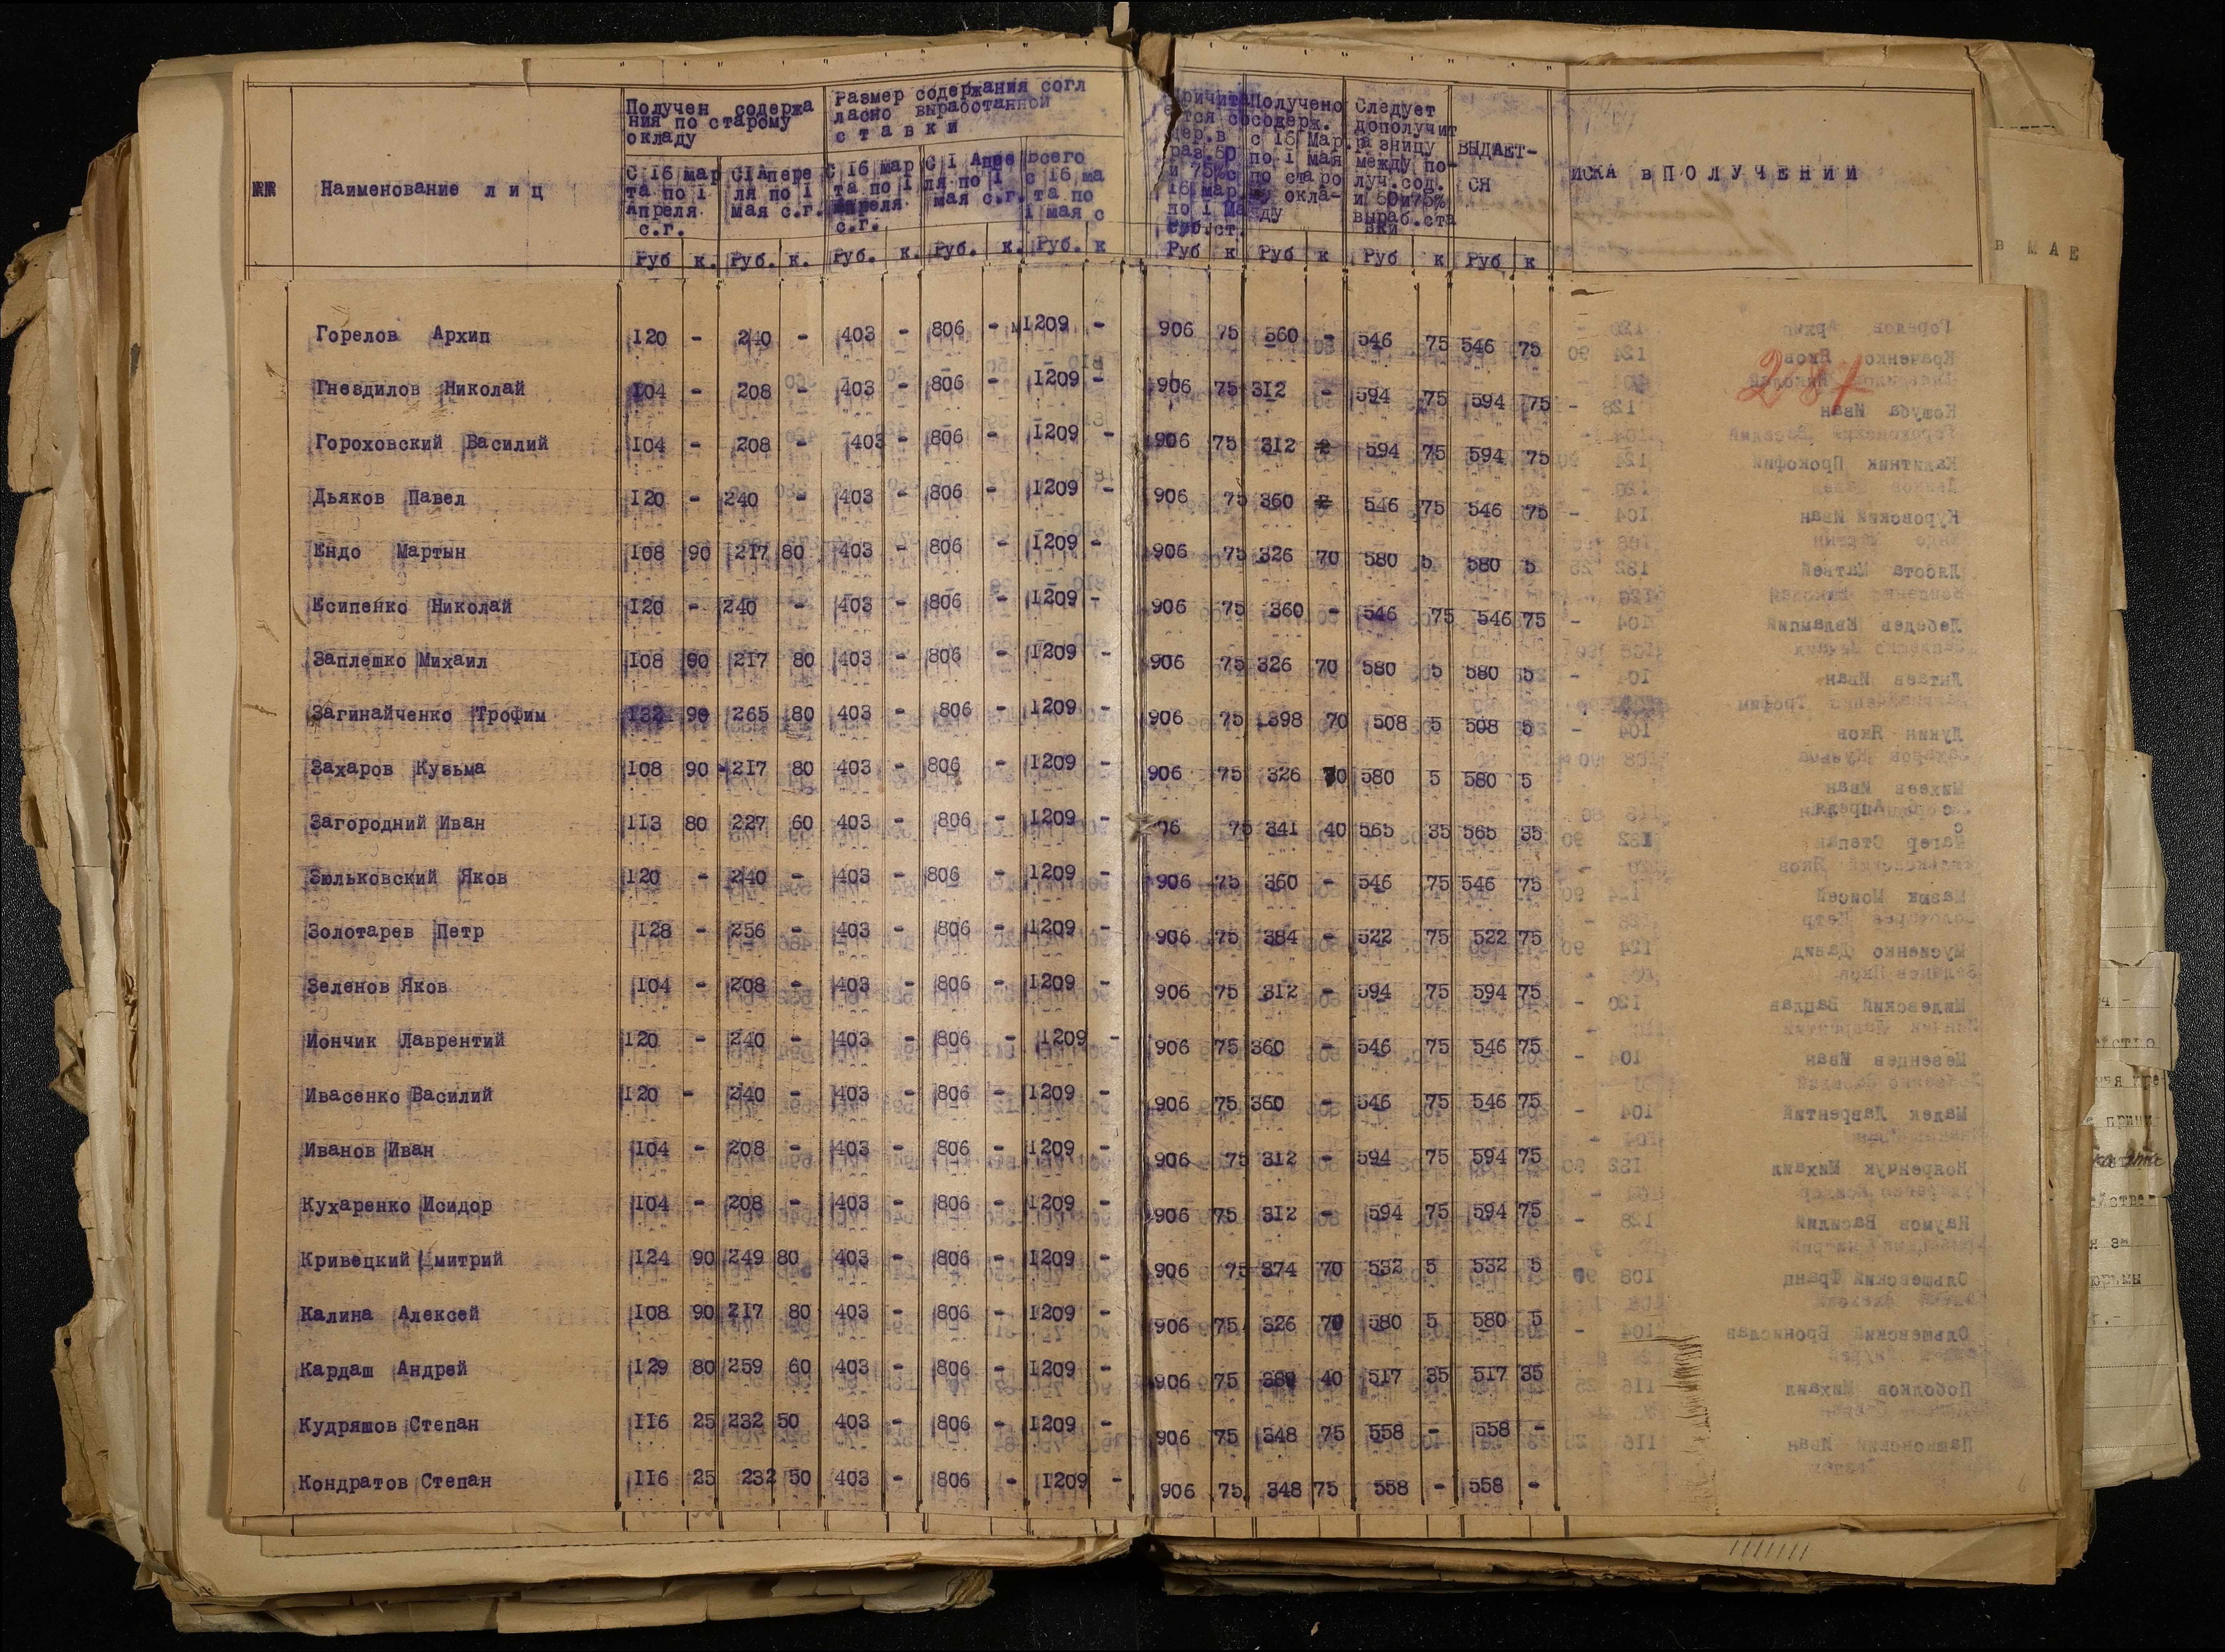 №№ Наименование лиц
Получен содержа
ния по старому
окладу
Размер содержания согл
ласно выработанной
ставки
С 16 мар
та по I
апреля
с.г.
С I Апре
ля по I
мая с.г.
С 16 мар
та по I
апреля
с.г.
С I Апре
ля по I
мая с.г.
Всего
с 16 ма
та по
I мая с
Причита
ется со
дер.в
раз.50
и 75% с
16 мар.
по I Ма
Руб.ст.
Получено
содерж.
с 16 Мар.
по I мая
по старо
окла-
ду
Следует
дополучит
разницу
между по-
луч.сод.
и 50и75%
выраб.ста
вки
ВЫДАЕТ-
СЯ
ИСКА в ПОЛУЧЕНИИ
в МАЕ
Руб к. Руб. к. Руб. к. Руб. к. Руб. к Руб к Руб к Руб к Руб к
Горелов Архип 120 - 240 - 403 - 806 - 1209 - 906 75 360 - 546 75 546 75
287
Гнездилов Николай 104 - 208 - 403 - 806 - 1209 - 906 75 312 - 594 75 594 75
Гороховский Василий 104 - 208 - 403 - 806 - 1209 - 906 75 312 - 594 75 594 75
Дьяков Павел 120 - 240 - 403 - 806 - 1209 - 906 75 360 - 546 75 546 75
Ендо Мартын 108 90 217 80 403 - 806 - 1209 - 906 75 326 70 580 5 580 5
Есипенко Николай 120 - 240 - 403 - 806 - 1209 - 906 75 360 - 546 75 546 75
Заплешко Михаил 108 90 217 80 403 - 806 - 1209 - 906 75 326 70 580 5 580 5
Загинайченко Трофим 132 90 265 80 403 - 806 - 1209 - 906 75 398 70 508 5 508 5
Захаров Кузьма 108 90 217 80 403 - 806 - 1209 - 906 75 326 70 580 5 580 5
Загородний Иван 113 80 227 60 403 - 806 - 1209 - 06 75 341 40 565 35 565 35
Зюльковский Яков 120 - 240 - 403 - 806 - 1209 - 906 75 360 - 546 75 546 75
Золотарев Петр 128 - 256 - 403 - 806 - 1209 - 906 75 384 - 522 75 522 75
Зеленов Яков 104 - 208 - 403 - 806 - 1209 - 906 75 312 - 594 75 594 75
Иончик Лаврентий 120 - 240 - 403 - 806 - 1209 - 906 75 360 - 546 75 546 75
Ивасенко Василий 120 - 240 - 403 - 806 - 1209 - 906 75 360 - 546 75 546 75
Иванов Иван 104 - 208 - 403 - 806 - 1209 - 906 75 312 - 594 75 594 75
Кухаренко Исидор 104 - 208 - 403 - 806 - 1209 - 906 75 312 - 594 75 594 75
Кривецкий митрий 124 90 249 80 403 - 806 - 1209 - 906 75 374 70 532 5 532 5
Калина Алексей 108 90 217 80 403 - 806 - 1209 - 906 75 326 70 580 5 580 5
Кардаш Андрей 129 80 259 60 403 - 806 - 1209 - 906 75 389 40 517 35 517 35
Кудряшов Степан 116 25 232 50 403 - 806 - 1209 - 906 75 348 75 558 - 558 -
Кондратов Степан 116 25 232 50 403 - 806 - 1209 - 906 75 348 75 558 - 558 -